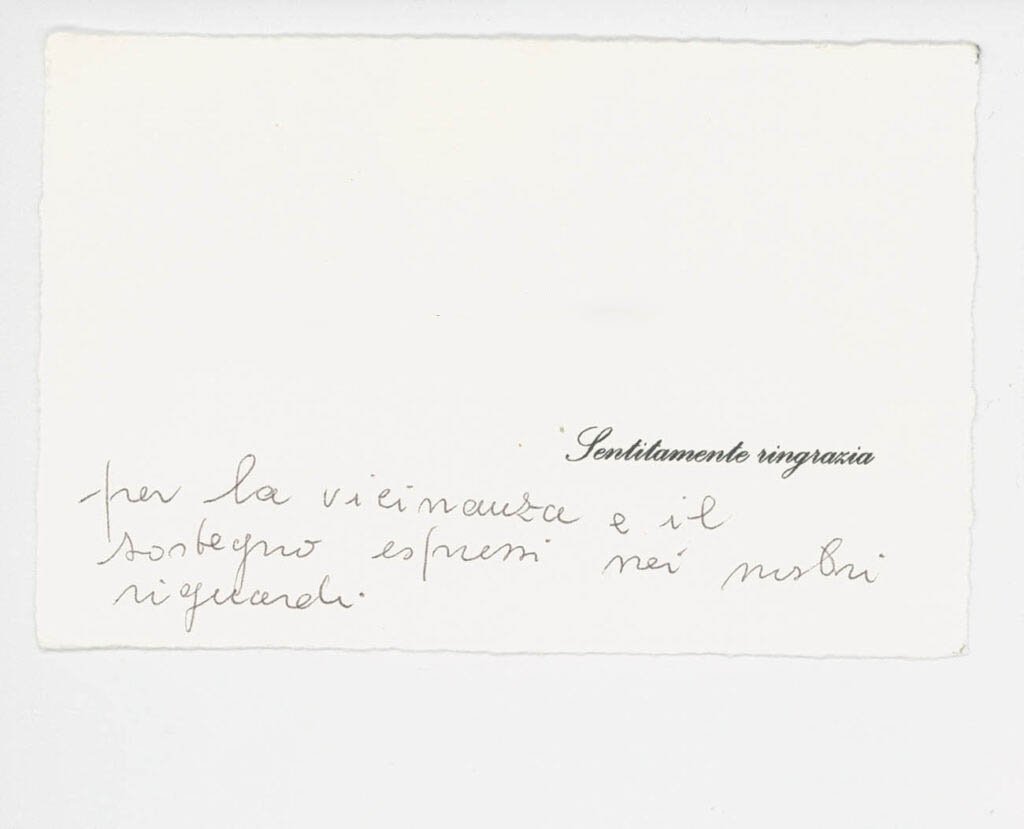 Sentitamente ringrazia
per la vicinanza e il
sostegno espressi nei nostri
riguardi.